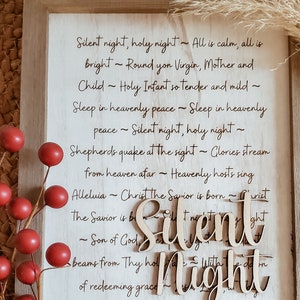 Silent night, holy night ~ All is calm, all is
bright ~ Round yon Virgin, Mother and
Child ~ Holy Infant so tender and mild ~
Sleep in heavenly peace ~ Sleep in heavenly
peace ~ Silent night, holy night ~
Shepherds quake at the sight ~ Glories stream
from heaven afar ~ Heavenly hosts sing
Alleluia ~ Christ the Savior is born ~ Christ
the Savior is
~ Son of God
beams from Thy
of redeeming grace ~
Silent
Night